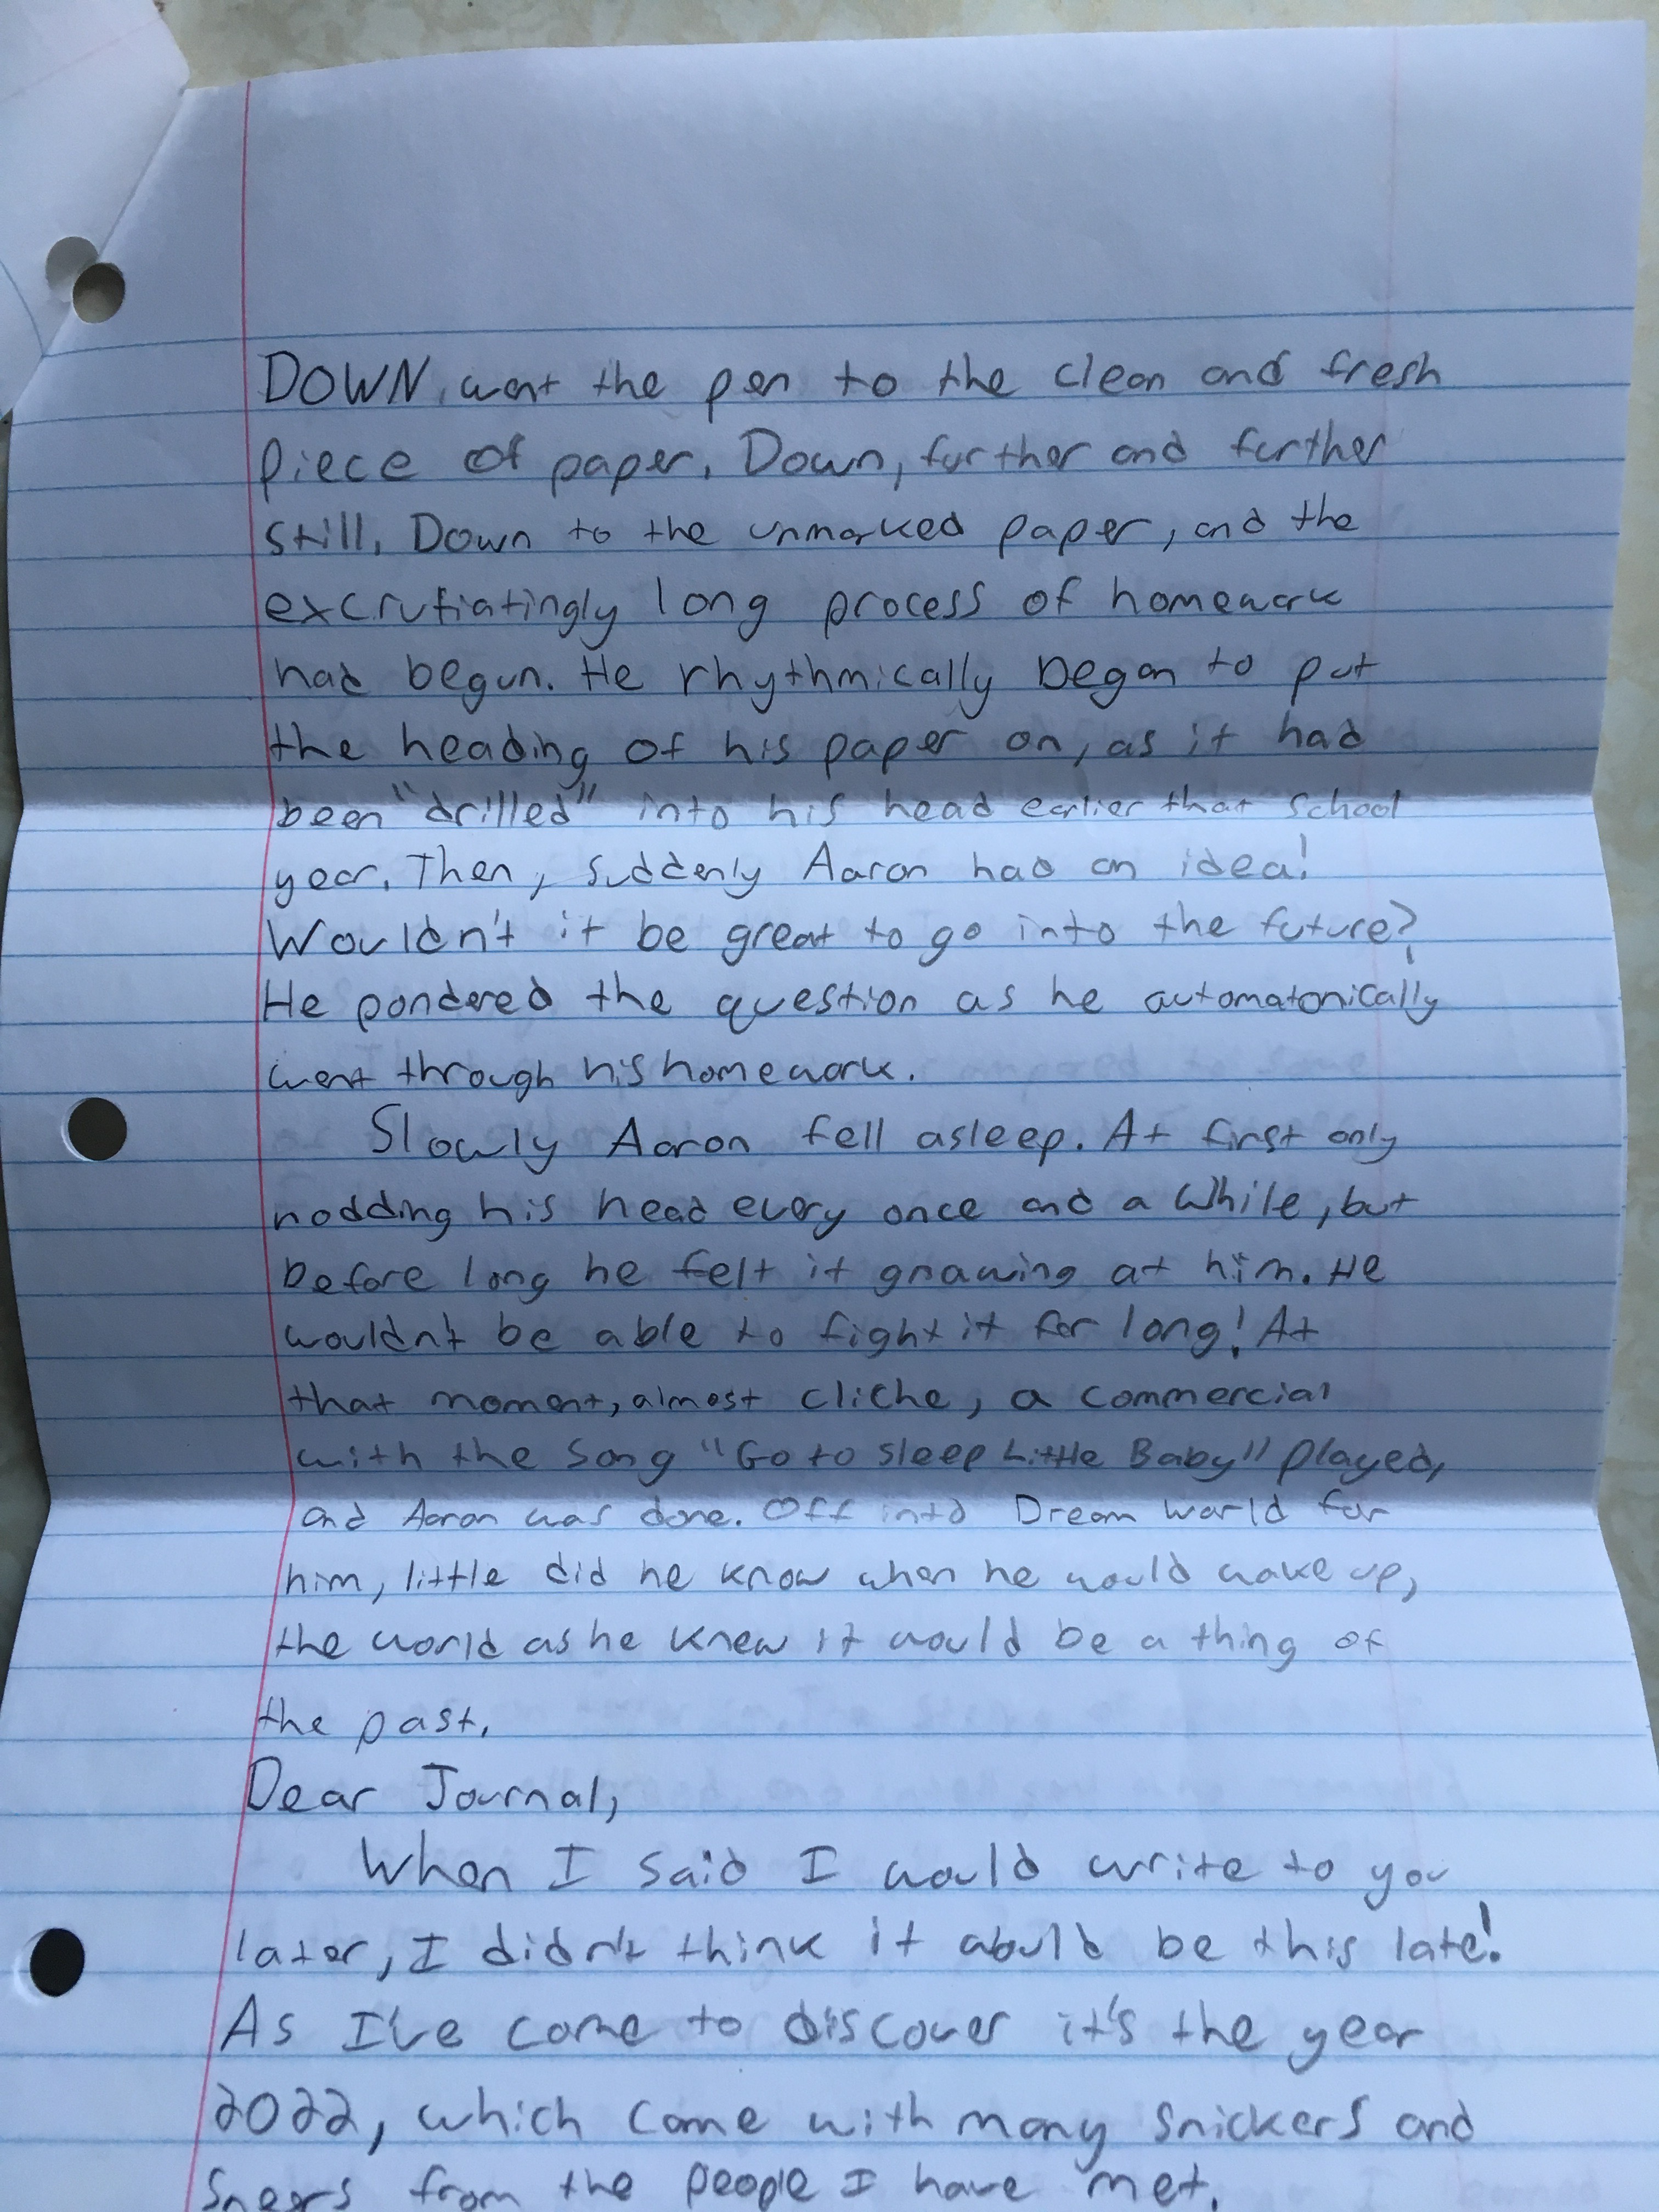 DOWN, went the pen to the clean and fresh
piece of paper. Down, further and further
still. Down to the unmarked paper, and the
excrutiatingly long process of homework
had begun. He rhythmically began to put
the heading of his paper on, as it had
been "drilled" into his head earlier that school
year. Then, suddenly Aaron had an idea!
Wouldn't it be great to go into the future?
He pondered the question as he automatonically
went through his homework.
Slowly Aaron fell asleep. At first only
nodding his head every once and a while, but
before long he felt it gnawing at him. He
wouldn't be able to fight it for long! At
that moment, almost cliche, a commercial
with the song "Go to sleep Little Baby" played,
and Aaron was done. Off into Dream World for
him, little did he know when he would wake up,
the world as he knew it would be a thing of
the past.
Dear Journal,
When I said I would write to you
later, I didn't think it would be this late!
As I've come to discover it's the year
2022, which came with many snickers and
sneers from the people I have met.